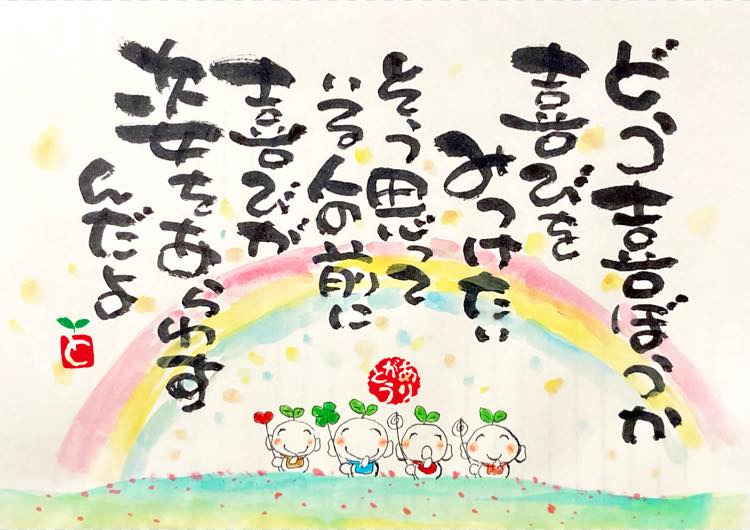 どう喜ぼうか
喜びを
みつけたい
そう思って
いる人の前に
喜びが
姿をあらわす
んだよ
と
ありがとう